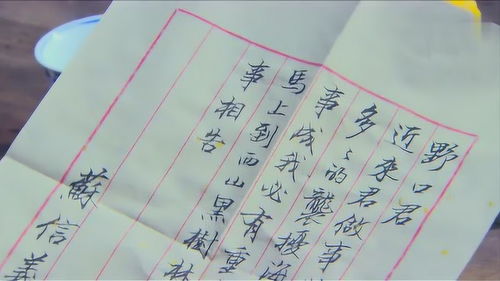 野口君
近來君做事
多々的襲擾海
事成我必有重
馬上到西山黑樹林
事相告
蘇信義